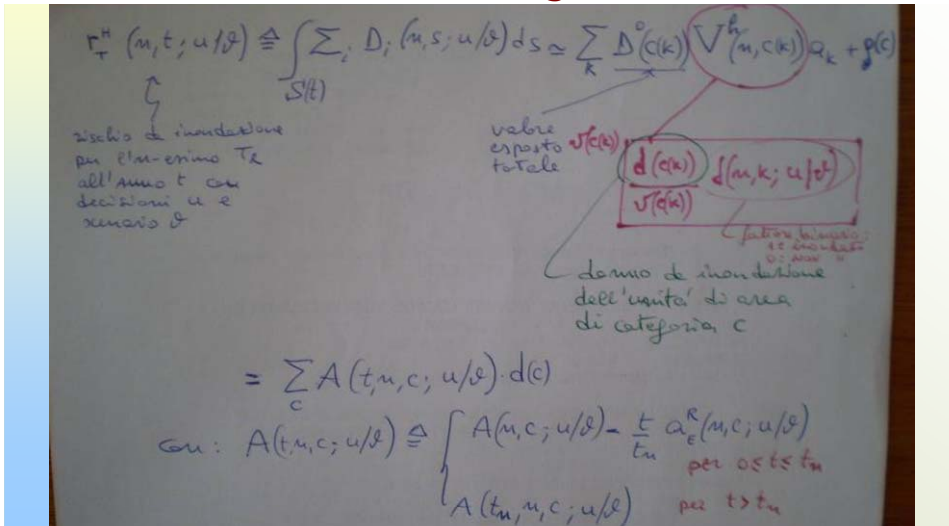 r_T^H (n,t; u/ϑ) ≜ ∫_{S(t)} Σ_i D_i (n,s; u/ϑ) ds ≃ Σ_k D°(c(k)) V^h(n,c(k)) a_k + g(c)
rischio da inondazione
per l'n-esimo T_R
all'anno t con
decisioni u e
scenario ϑ
valore
esposto
totale
v(c(k))
d(c(k)) / v(c(k)) f(n,k; u/ϑ)
fattore binario:
1: inondato
0: non "
danno da inondazione
dell'unità di area
di categoria C
= Σ_c A(t,n,c; u/ϑ)·d(c)
con: A(t,n,c; u/ϑ) ≜ { A(n,c; u/ϑ) - t/t_n a_ϵ^R (n,c; u/ϑ)
per 0≤t≤t_n
A(t_n,n,c; u/ϑ) per t>t_n